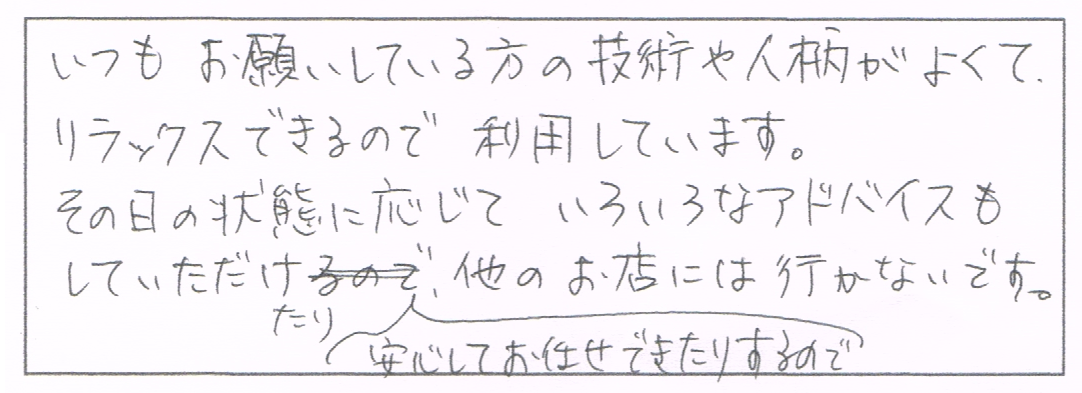 いつもお願いしている方の技術や人柄がよくて、
リラックスできるので利用しています。
その日の状態に応じていろいろなアドバイスも
していただけるので、他のお店には行かないです。
たり
安心してお任せできたりするので